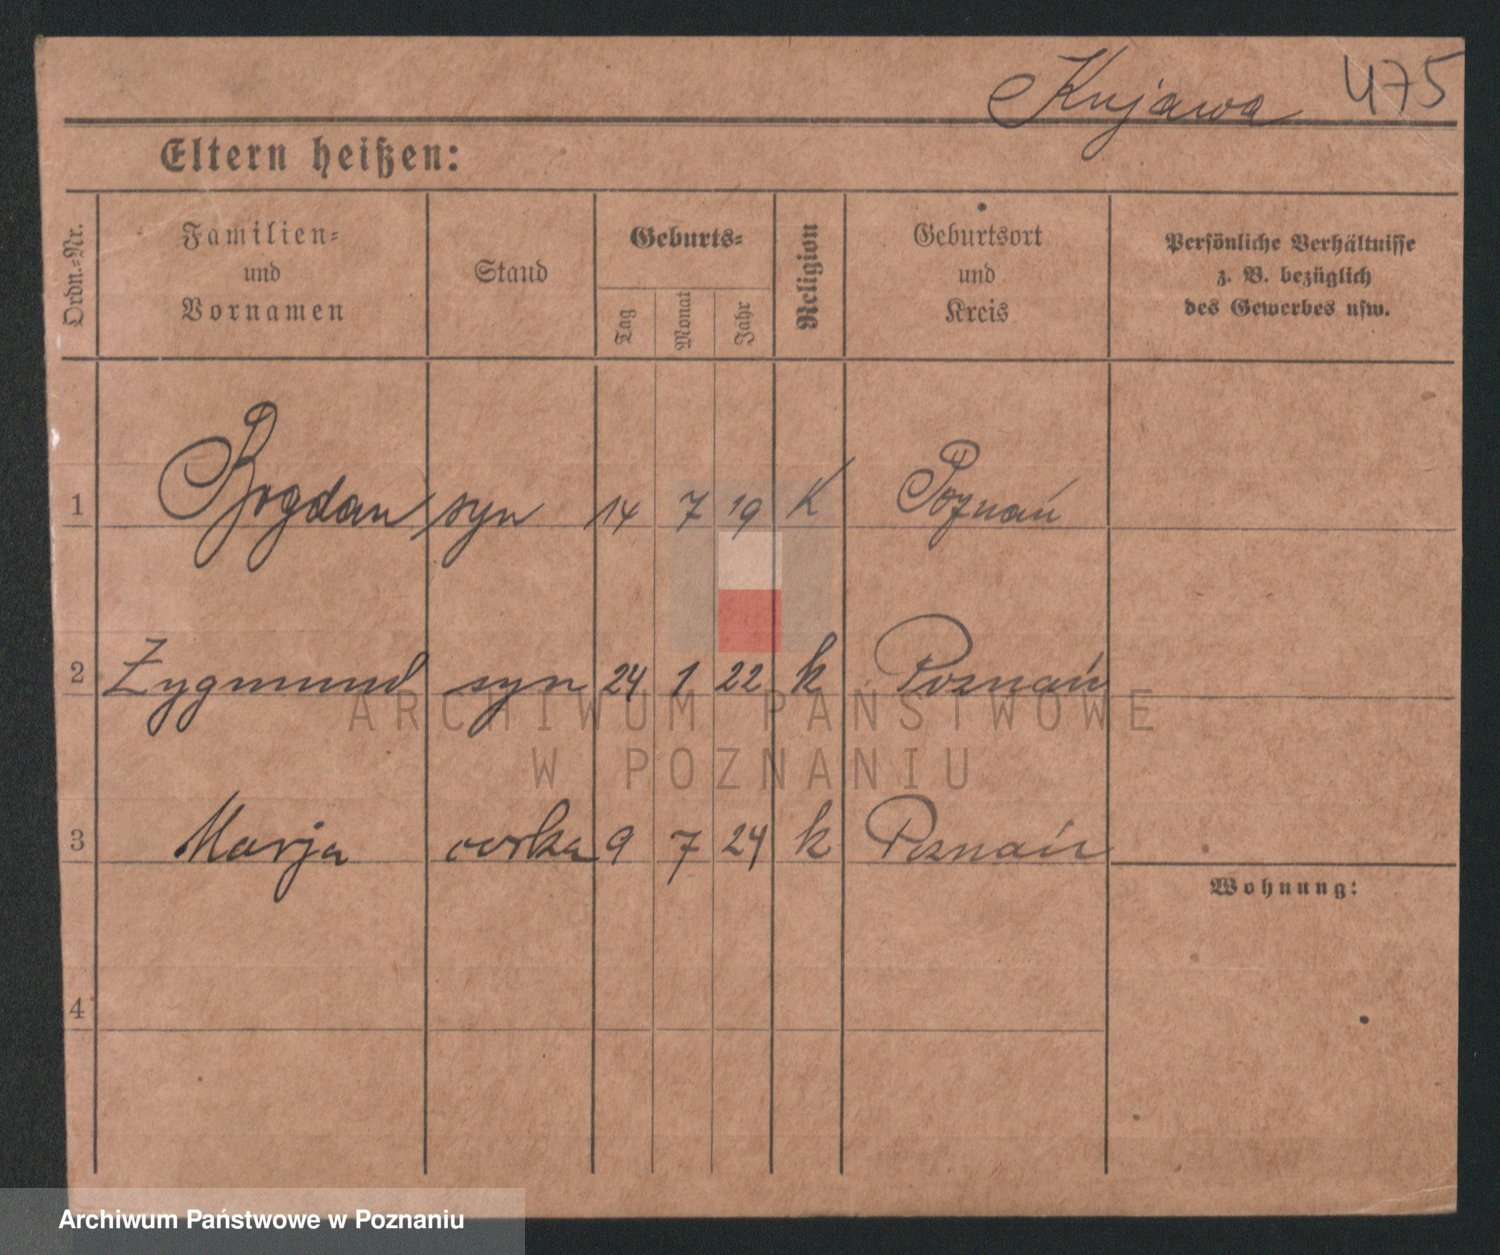 Kujawa 475
Eltern heißen:
Ordn.-Nr. Familien- und Vornamen Stand Geburts- Tag Monat Jahr Religion Geburtsort und Kreis Persönliche Verhältnisse z. B. bezüglich des Gewerbes usw.
1 Bogdan syn 14 7 19 K Poznań
2 Zygmund syn 24 1 22 k Poznań
ARCHIWUM PAŃSTWOWE
W POZNANIU
3 Marja corka 9 7 24 k Poznań
Wohnung:
4
Archiwum Państwowe w Poznaniu